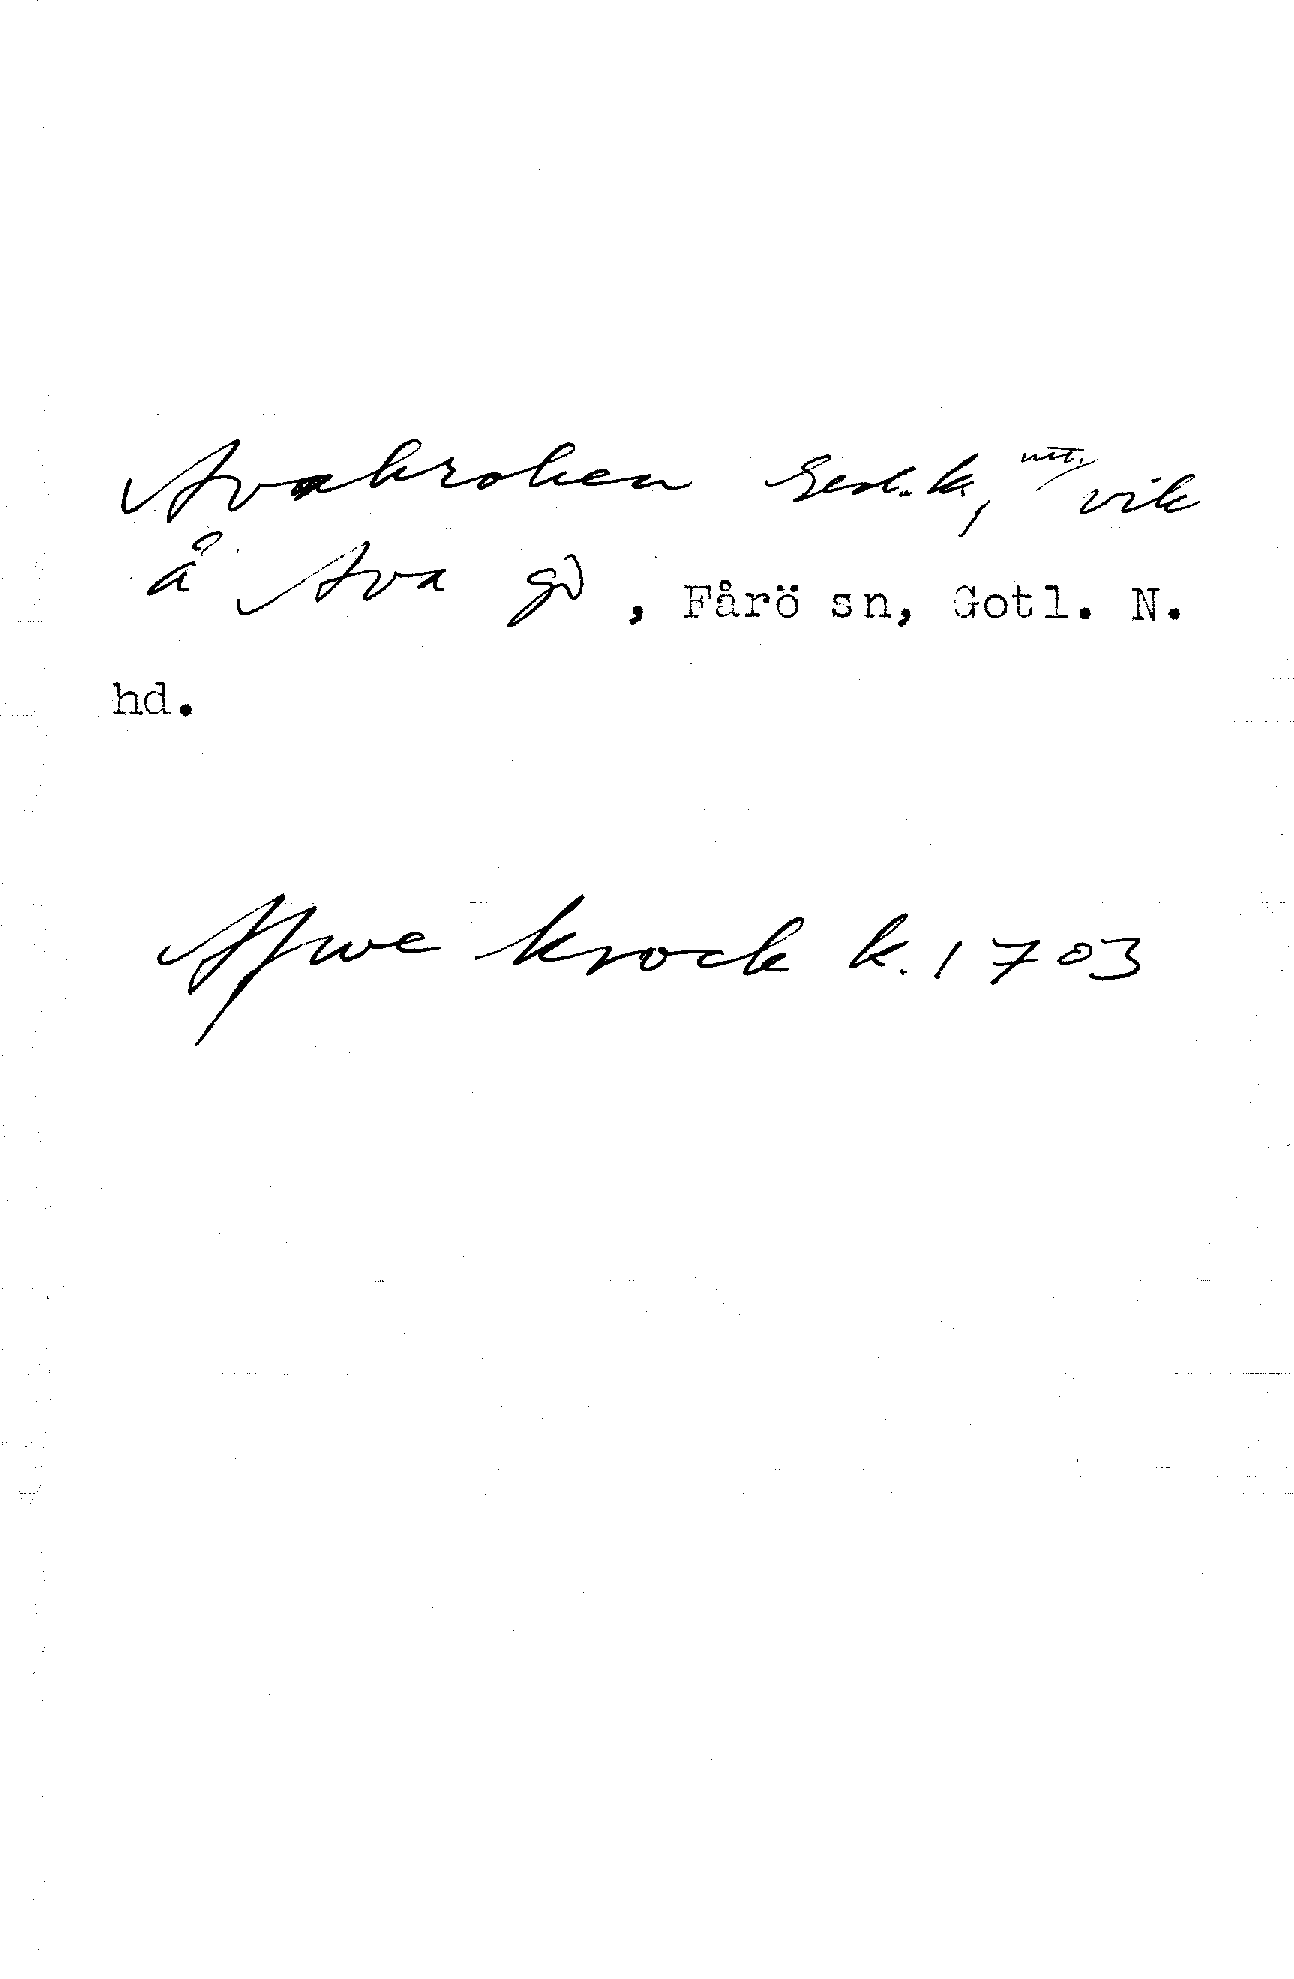 Avakroken Gen.k, utt. vik
å Ava gd, Fårö sn, Gotl. N.
hd.
Afwe krock k. 1703